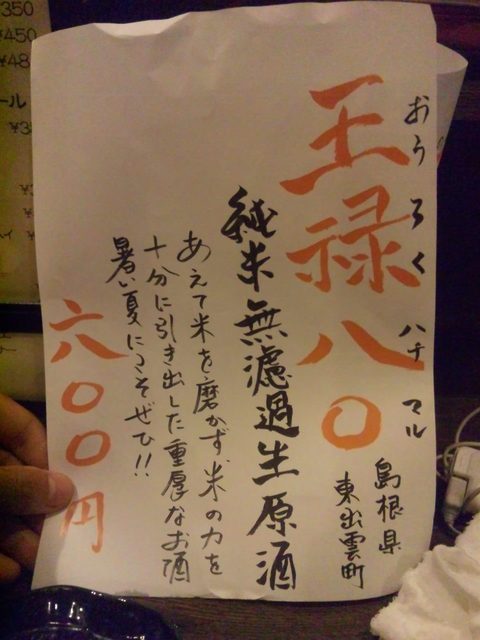 王禄八〇
おうろくハチマル
島根県
東出雲町
純米無濾過生原酒
あえて米を磨かず、米の力を
十分に引き出した重厚なお酒
暑い夏にこそぜひ!!
六〇〇円
350
¥450
¥48
ール